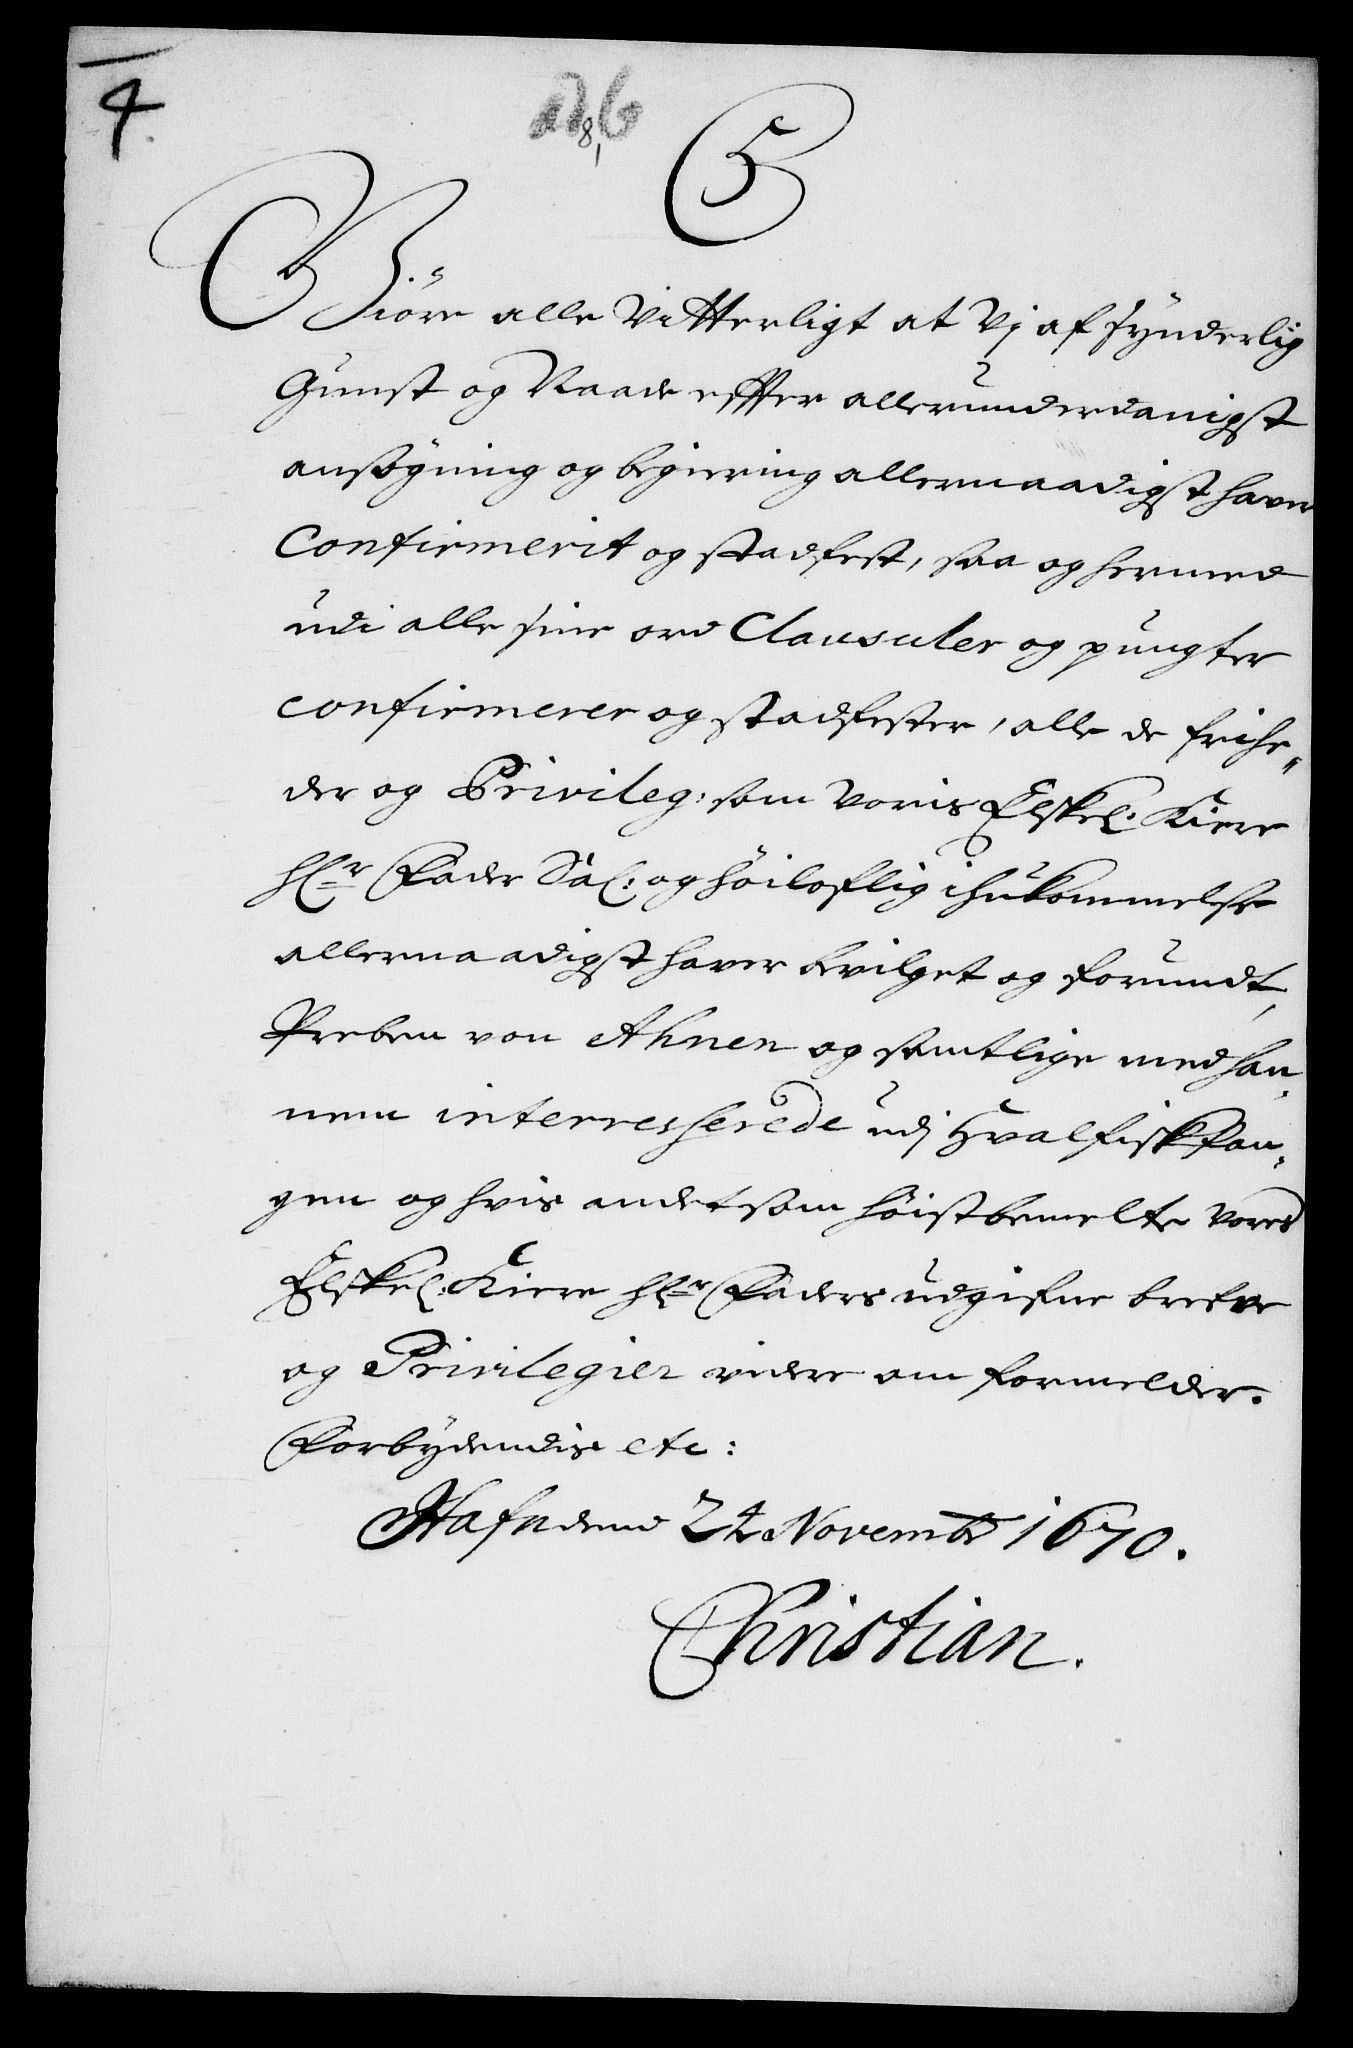 4.
8,
C5
Giöre alle Vitterligt at Vj af synderlig
Gunst og Naade effter allerunderdanigst
ansögning og begiering allernaadigst haver
Confirmerit og stadfest, saa og hermed
udi alle sine ord Clausuler og pungter
confirmerer og stadfester, alle de frihe„
der og Privileg: som Voris Elskel: Kiere
Hr Fader Sal: og höiloflig ihukommelse
allernaadigst haver bevilget og forundt,
Preben von Ahnen og samtlige med han„
nem interresserede udj Hvalfiskfan„
gen og hvis andet som höistbemelte Vores
Elskel: Kiere Hr Faders udgifne brefve
og Privilegier videre om formelder.
Forbydendis etc:
Hafn den 24 Novemb 1670.
Christian.